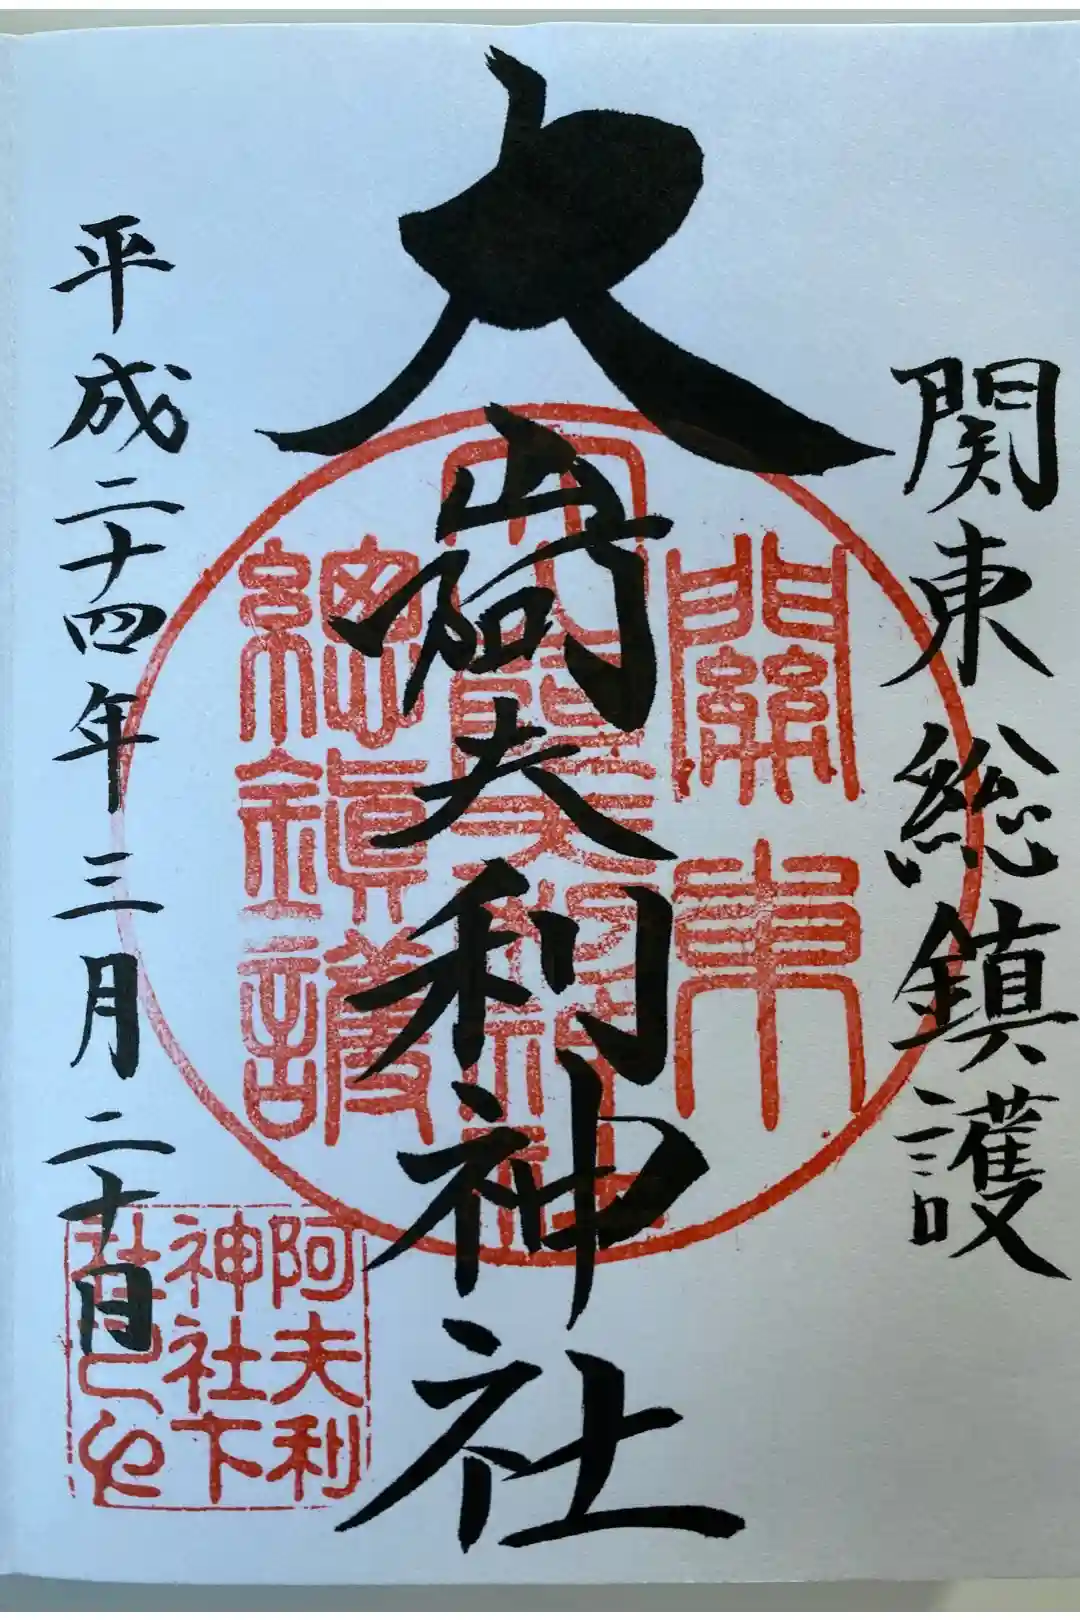 関東総鎮護
大山阿夫利神社
平成二十四年三月二十日
關東
總鎮護
阿夫利
神社下
社